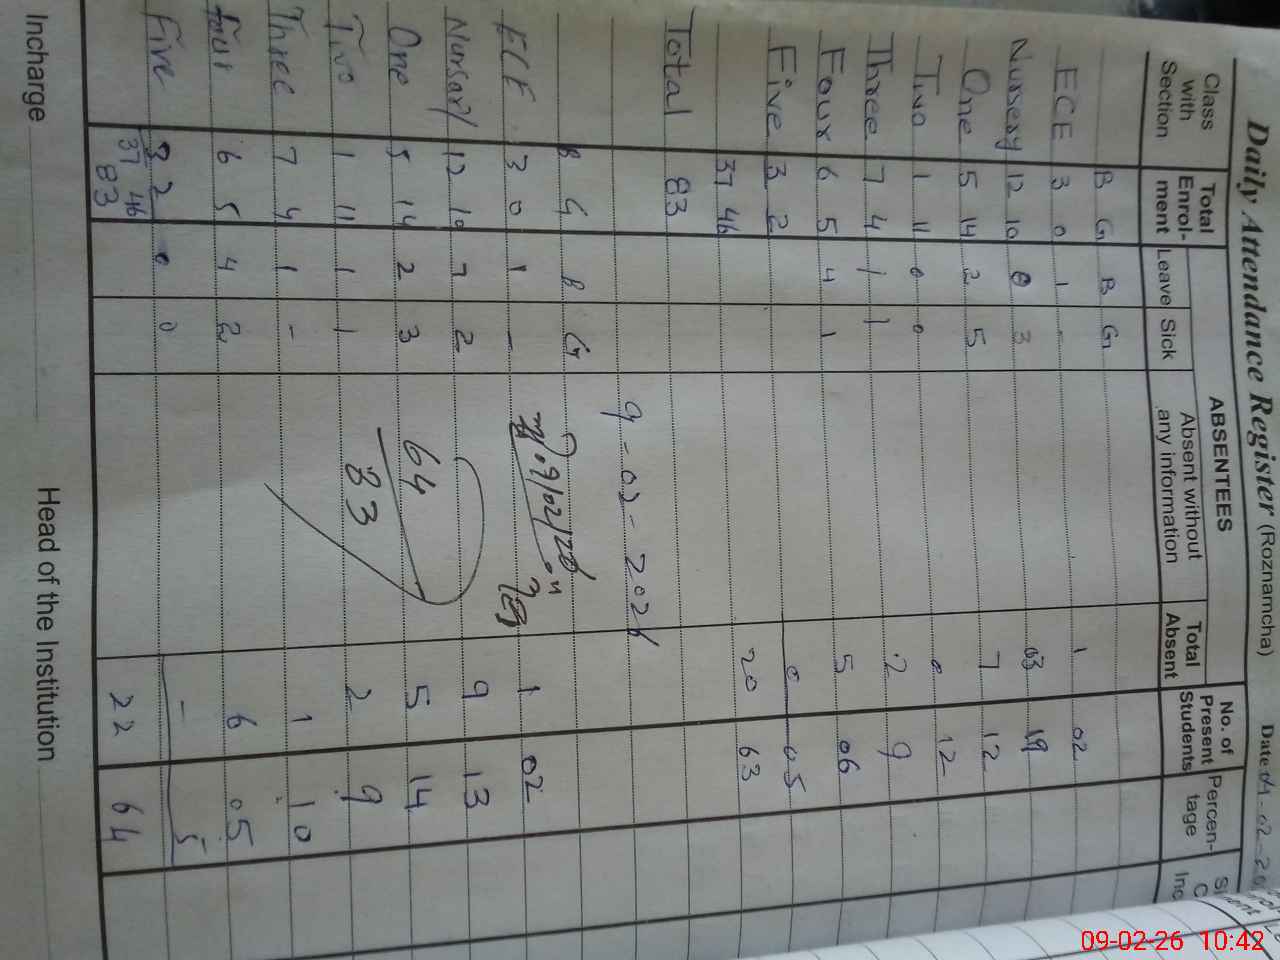 Daily Attendance Register (Roznamcha) Date:
Class with Section Total Enrol-ment ABSENTEES No. of Present Students Percen-tage
Leave Sick Absent without any information Total Absent
B G B G
ECE 3 0 1 - 1 02
Nursery 12 10 0 3 03 19
One 5 14 2 5 7 12
Two 1 11 0 0 0 12
Three 7 4 1 1 2 9
Four 6 5 4 1 5 06
Five 3 2 0 05
37 46 20 63
Total 83
9-02-2026
B G B G
ECE 3 0 1 - 1 02
Nursary 12 10 7 2 9 13
One 5 14 2 3 64 5 14
Two 1 11 1 1 83 2 9
Three 7 4 1 - 1 10
Four 6 5 4 2 6 05
Five 3 2 0 0 - 5
37 46 22 64
83
Incharge Head of the Institution
09-02-26 10:42